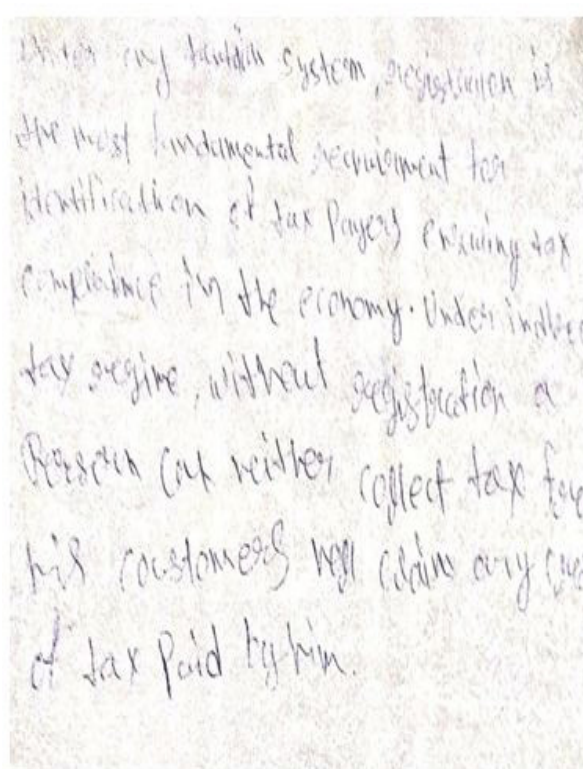 Under any taxation system, registration is
the most fundamental requirement for
identification of tax payers ensuring tax
compliance in the economy. Under indirec
tax regime, without registration a
Person can neither collect tax
his customers nor claim any
of tax paid by him.